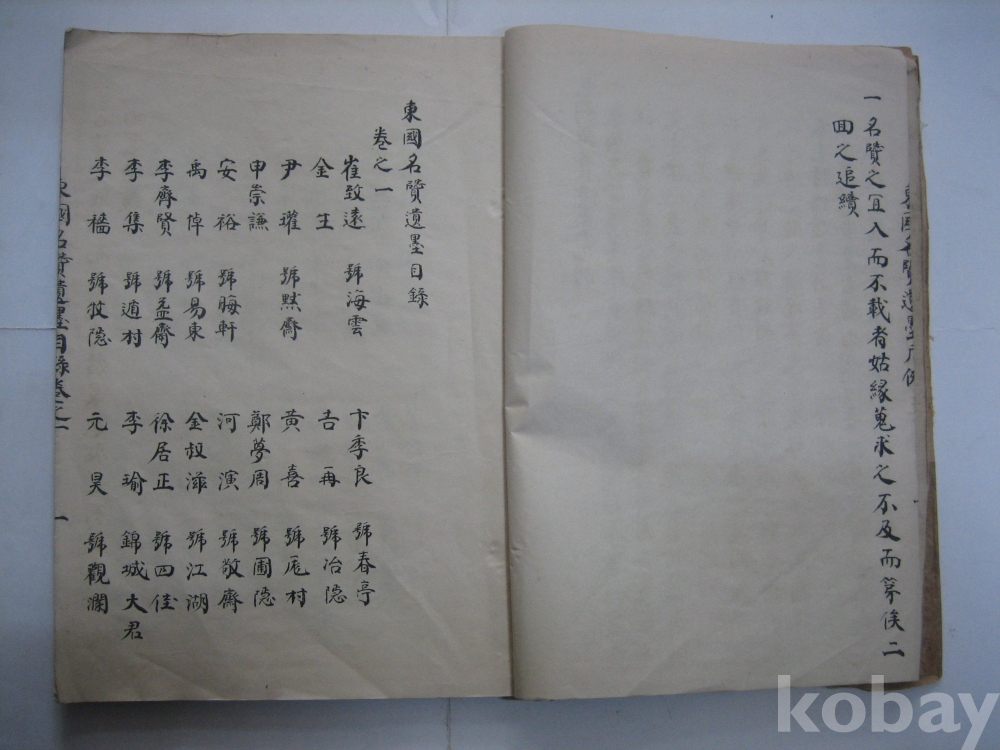 一名賢之宜入而不載者姑緣蒐求之不及而第俟二
回之追續
東國名賢遺墨凡例
東國名賢遺墨目錄
卷之一
崔致遠 號海雲 卞季良 號春亭
金生 吉再 號冶隱
尹瓘 號默齋 黃喜 號厖村
申崇謙 鄭夢周 號圃隱
安裕 號晦軒 河演 號敬齋
禹倬 號易東 金叔滋 號江湖
李齊賢 號益齋 徐居正 號四佳
李集 號遁村 李瑜 錦城大君
李穡 號牧隱 元昊 號觀瀾
東國名賢遺墨目錄卷之一 一
kobay